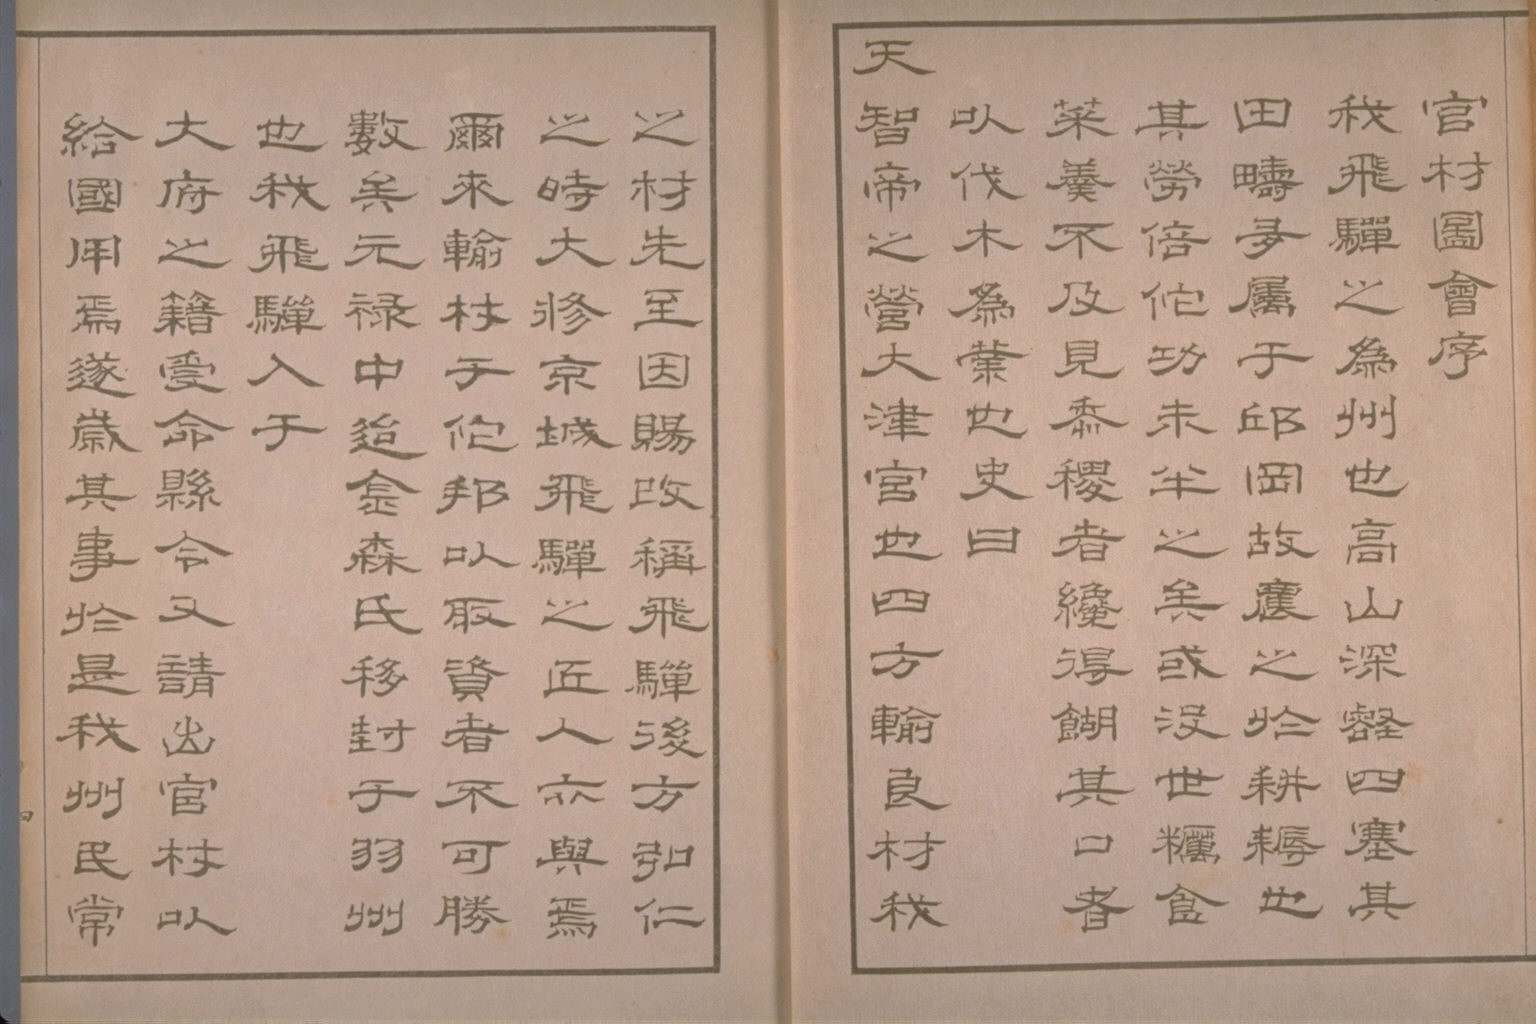 官材圖會序
我飛驒之為州也高山深谿四塞其
田疇多屬于邱岡故農之於耕耨也
其勞倍佗功未半之矣或没世糲食
菜羹不及見黍稷者纔得餬其口者
以伐木為業也史曰
天智帝之營大津宮也四方輸良材我
之材先至因賜改稱飛驒後方弘仁
之時大修京城飛驒之匠人亦與焉
爾來輸材于佗邦以取資者不可勝
數矣元祿中迨金森氏移封于羽州
也我飛驒入于
大府之籍受命縣令又請出官材以
給國用焉遂歲其事於是我州民常
四